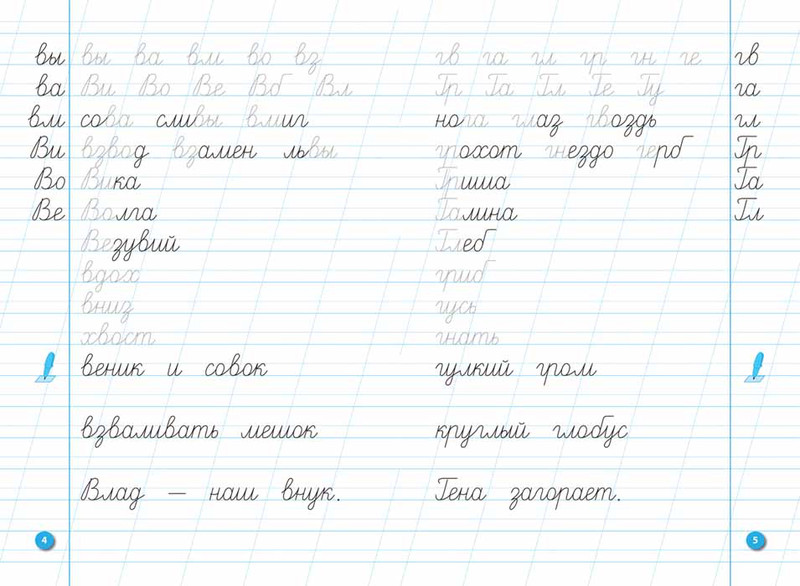 вы вы ва вм во вз
ва Ви Во Ве Вб Вл
вм сова сливы вмиг
Ви взвод взамен львы
Во Вика
Ве Волга
Везувий
вдох
вниз
хвост
веник и совок
взваливать мешок
Влад — наш внук.
4
гв га гл гр гн ге гв
Гр Га Гл Ге Гу га
нога глаз гвоздь гл
грохот гнездо герб Гр
Гриша Га
Галина Гл
Глеб
гриб
гусь
гнать
гулкий гром
круглый глобус
Гена загорает.
5